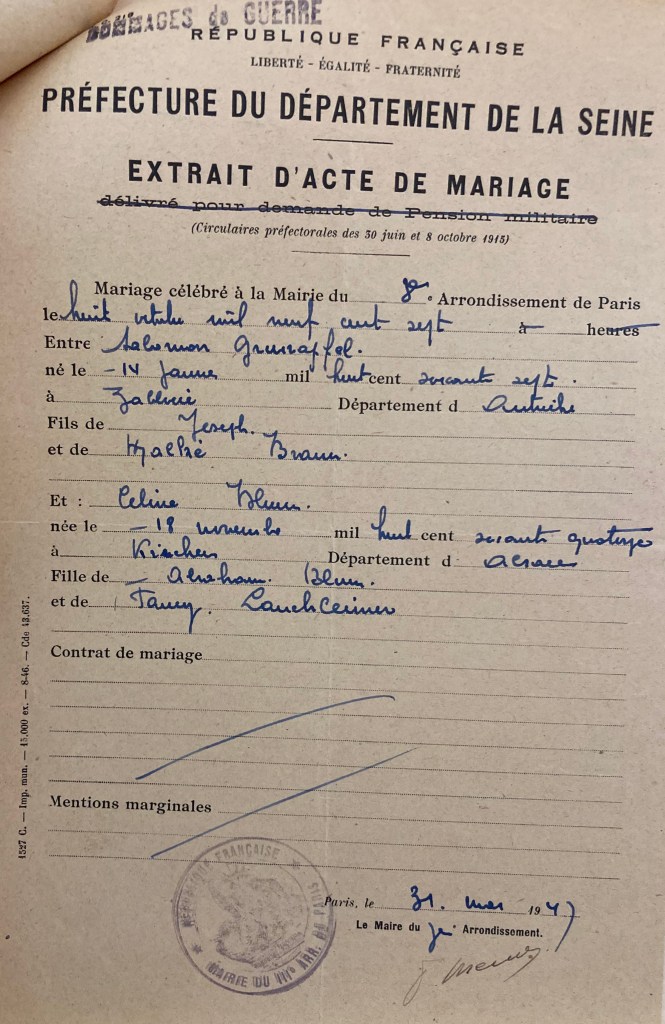 DOMMAGES de GUERRE
RÉPUBLIQUE FRANÇAISE
LIBERTÉ - ÉGALITÉ - FRATERNITÉ
PRÉFECTURE DU DÉPARTEMENT DE LA SEINE
EXTRAIT D'ACTE DE MARIAGE
délivré pour demande de Pension militaire
(Circulaires préfectorales des 30 juin et 8 octobre 1915)
Mariage célébré à la Mairie du Arrondissement de Paris
le huit mil neuf cent sept à heures
Entre Salomon
né le 14 mil huit cent soixante sept.
à Département d Autriche
Fils de Joseph.
et de Braun.
Et : Celine Blum.
née le 18 novembre mil huit cent soixante quatorze
à Département d Alsace
Fille de Abraham. Blum.
et de
Contrat de mariage
Mentions marginales
RÉPUBLIQUE FRANÇAISE
MAIRIE DU VIIIe ARR. DE PARIS
Paris, le 31. mai 1947
Le Maire du Arrondissement.
1527 C. — Imp. mun. — 15.000 ex. — 8-46. — Cde 43.637.